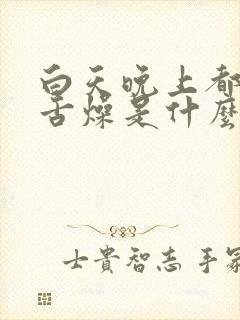 白天晚上都
舌燥是什麼
士貴智志 手冢